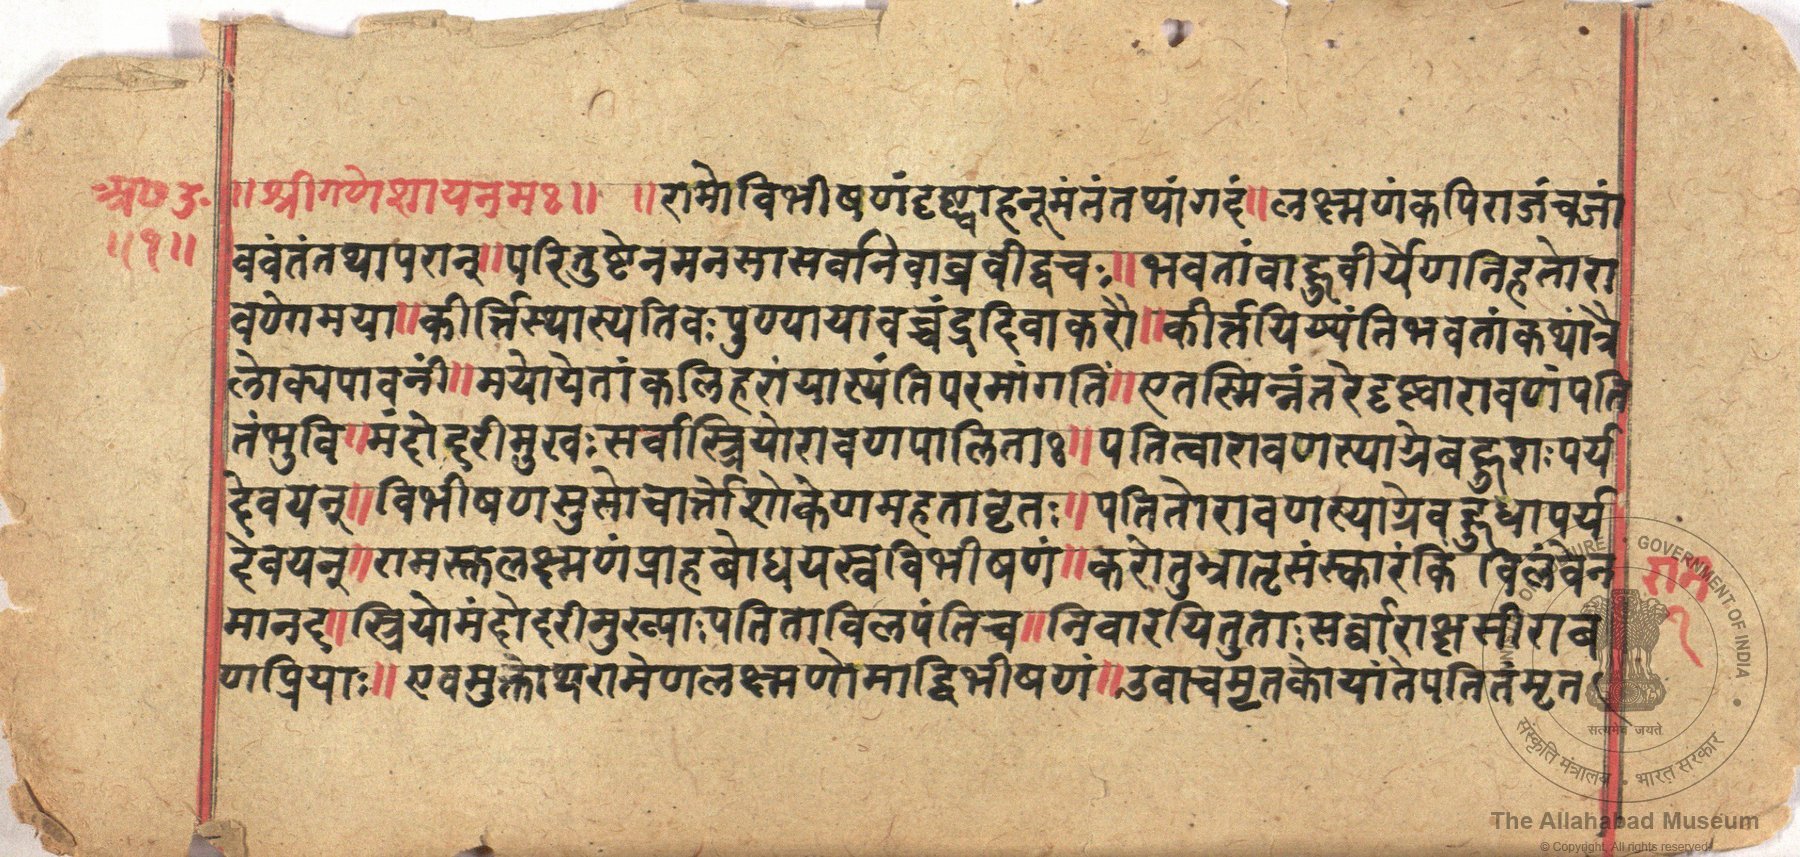 अ॰ यु॰ ॥श्रीगणेशायनमः॥ ॥रामोविभीषणंदृष्ट्वाहनूमंतंतथांगदं॥लक्ष्मणंकपिराजंचजां
॥१॥ बवंतंतथापरान्॥परितुष्टेनमनसासर्वानेवाब्रवीद्वचः॥भवतांबाहुवीर्येणनिहतोरा
वणोमया॥कीर्त्तिस्थास्यतिवःपुण्यायावच्चंद्रदिवाकरौ॥कीर्त्तयिष्यंतिभवतांकथांत्रै
लोक्यपावनीं॥मयोपेतांकलिहरांयास्यंतिपरमांगतिं॥एतस्मिन्नंतरेदृष्ट्वारावणंपति
तंभुवि॥मंदोदरीमुखःसर्वास्त्रियोरावणपालिताः॥पतित्वारावणस्याग्रेबहुशःपर्य
देवयन्॥विभीषणसुसोचार्त्तोशोकेणमहतावृतः॥पतितोरावणस्याग्रेबहुधापर्य
देवयन्॥रामस्तलक्ष्मणंप्राहबोधयस्वविभीषणं॥करोतुभ्रातृसंस्कारंकिं विलंबेन
मानद॥स्त्रियोमंदोदरीमुख्याःपतिताविलपंतिच॥निवारयितुताःसर्व्वाराक्षसीराव
णप्रियाः॥एवमुक्तोथरामेणलक्ष्मणोमाद्विभीषणं॥उवाचमृतकोयांतेपतितंमृत
राम
१
MINISTRY OF CULTURE • GOVERNMENT OF INDIA
सत्यमेव जयते
संस्कृति मंत्रालय • भारत सरकार
The Allahabad Museum
© Copyright, All rights reserved.